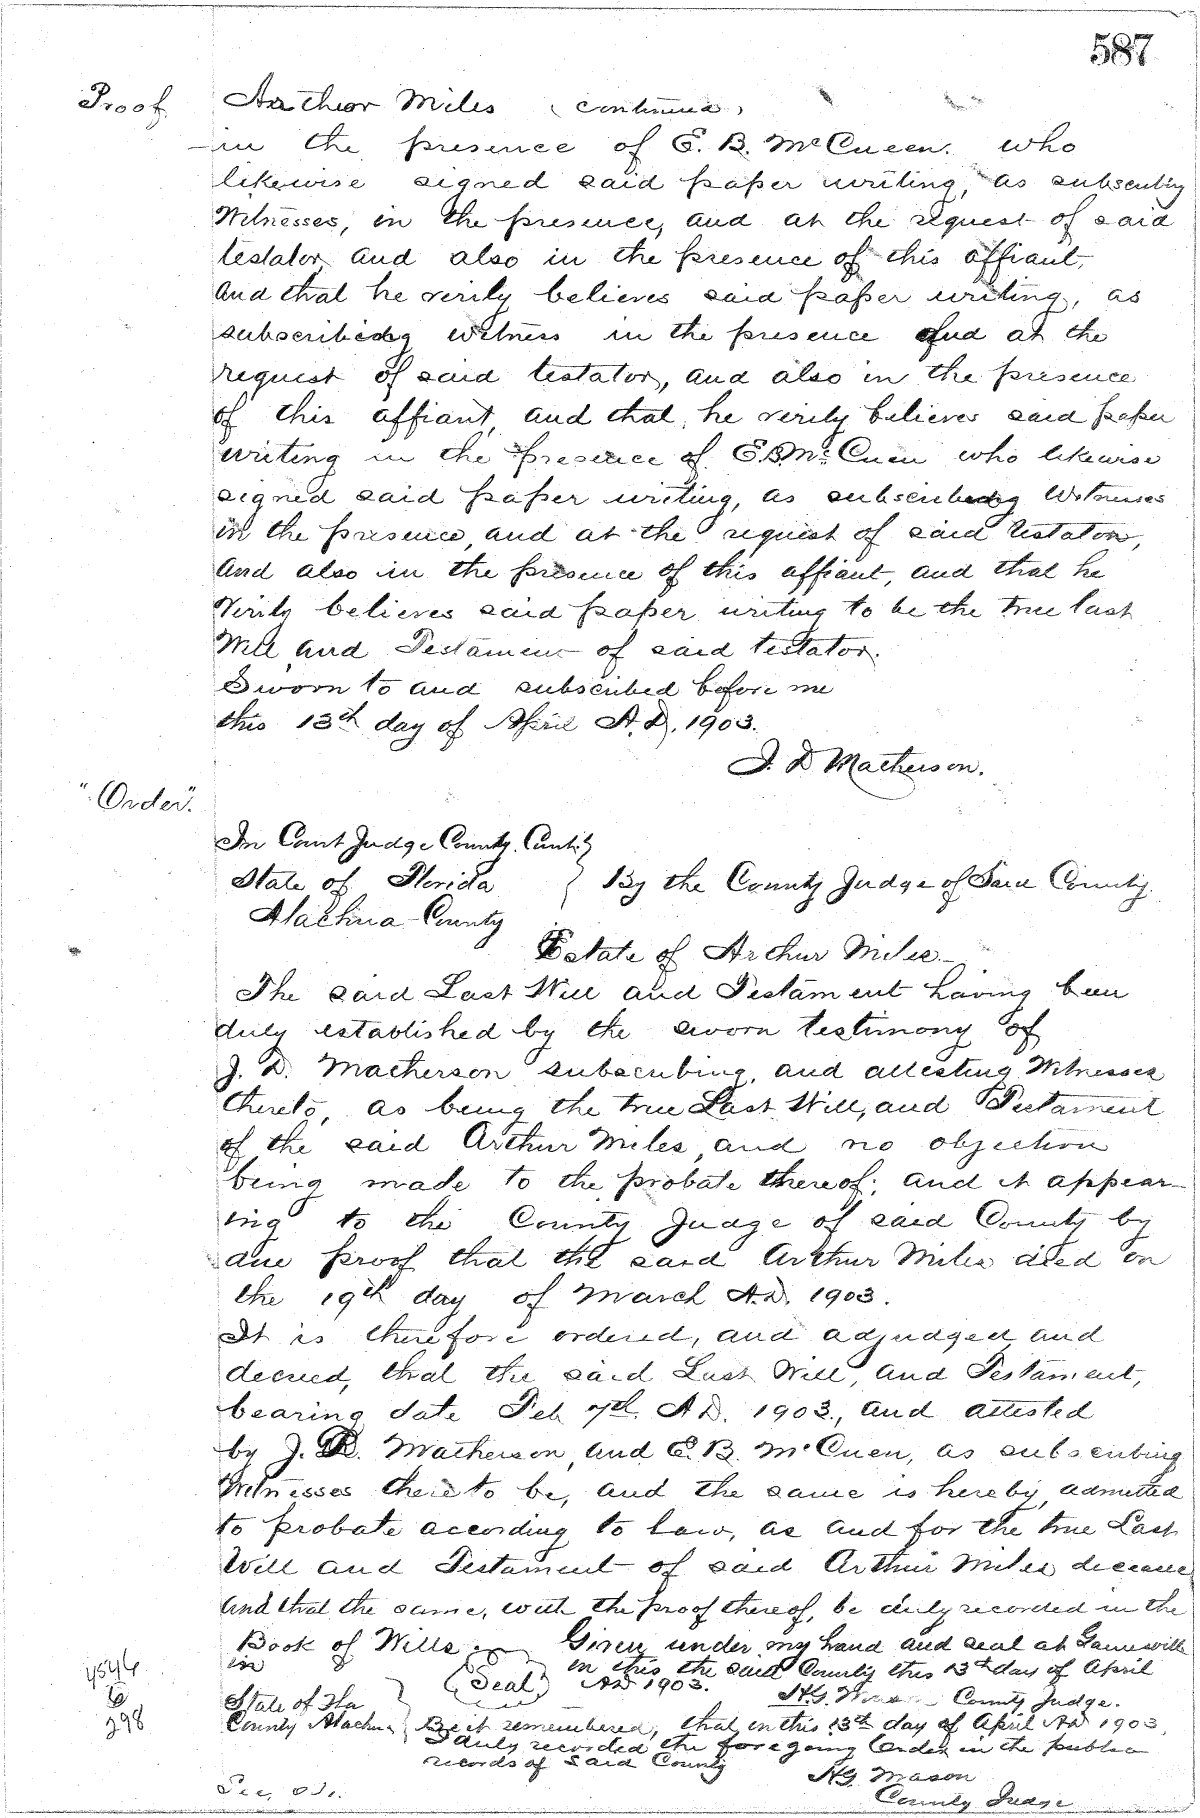 587
Proof
Arthor Miles (continued)
in the presence of E. B. McCueen. who
likewise signed said paper writing, as subscribing
Witnesses, in the presence, and at the request of said
testator, and also in the presence of this affiant,
and that he verily believes said paper writing, as
subscribing witness in the presence and at the
request of said testator, and also in the presence
of this affiant, and that, he verily believes said paper
writing in the presence of E.B. McCuen who likewise
signed said paper writing, as subscribing Witnesses
in the presence, and at the request of said testator,
and also in the presence of this affiant, and that he
Verily believes said paper writing to be the true last
Will and Testament of said testator.
Sworn to and subscribed before me
this 13th day of April A.D. 1903.
J. D Matherson.
"Order".
In Court Judge County.
State of Florida } By the County Judge of Said County.
Alachua County
Estate of Arthur Miles.
The said Last Will and Testament having been
duly established by the sworn testimony of
J. D. Matherson subscribing, and attesting Witnesses
thereto, as being the true Last Will, and Testament
of the said Arthur Miles, and no objection
being made to the probate thereof; and it appear-
ing to the County Judge of said County by
due proof that the said Arthur Miles died on
the 19th day of March A.D. 1903.
It is therefore ordered, and adjudged and
decreed, that the said Last Will, and Testament,
bearing date Feb 7th. A.D. 1903., and attested
by J. D. Matherson, and E. B. McCuen, as subscribing
Witnesses thereto be, and the same is hereby, admitted
to probate according to law, as and for the true Last
Will and Testament of said Arthur Miles
and that the same, with the proof thereof, be duly recorded in the
Book of Wills Given under my hand and seal at Gainesville
in in this the said County this 13th day of April
(Seal) AD 1903. H.G. County Judge.
4546
298
State of Fla
County Alachua } Be it remembered, that on this 13th day of April AD 1903,
I duly recorded the foregoing Order in the public
records of Said County
H.G. Mason
County Judge